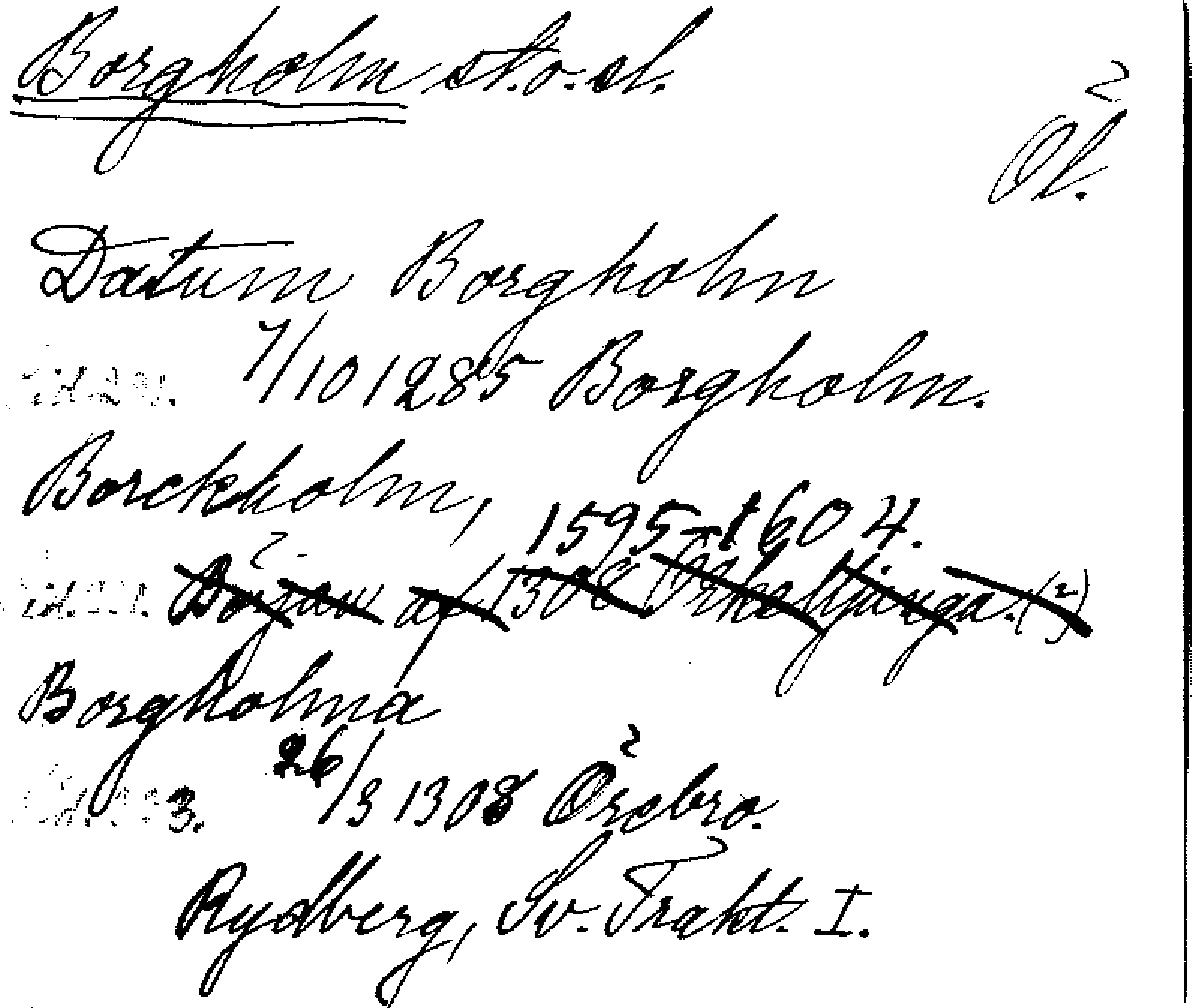 Borgholm st. o. sl.
Öl.
Datum Borgholm
7/10 1285 Borgholm.
Borckholm, 1595-1604.
af 1308 Örkelljunga. (2)
Borgholma
3. 26/3 1308 Örebro.
Rydberg, Sv. Trakt. I.